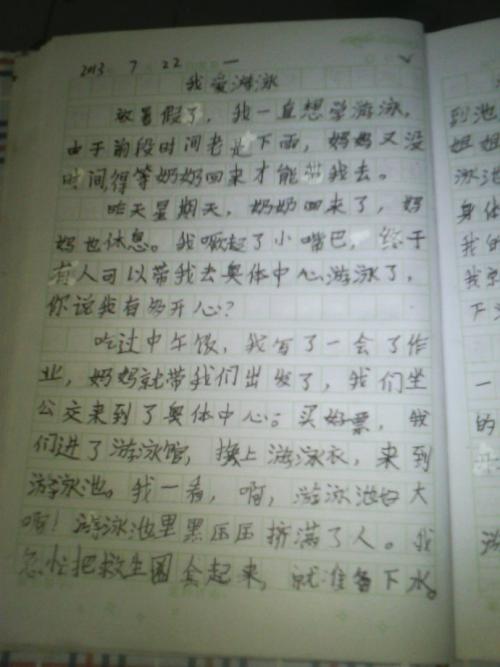 2013 7 22 一
我爱游泳
放暑假了，我一直想学游泳，
由于前段时间老是下雨，妈妈又没
时间得等奶奶回来才能带我去。
昨天星期天，奶奶回来了，妈
妈也休息。我噘起了小嘴巴，终于
有人可以带我去奥体中心游泳了，
你说我有多开心？
吃过中午饭，我写了一会了作
业，妈妈就带我们出发了，我们坐
公交来到了奥体中心。买好票，我
们进了游泳馆，换上游泳衣，来到
游泳池。我一看，啊，游泳池好大
啊！游泳池里黑压压挤满了人。我
急忙把救生圈套起来，就准备下水。
到池
姐姐
泳池
身体
我的
我
下
一
的
游